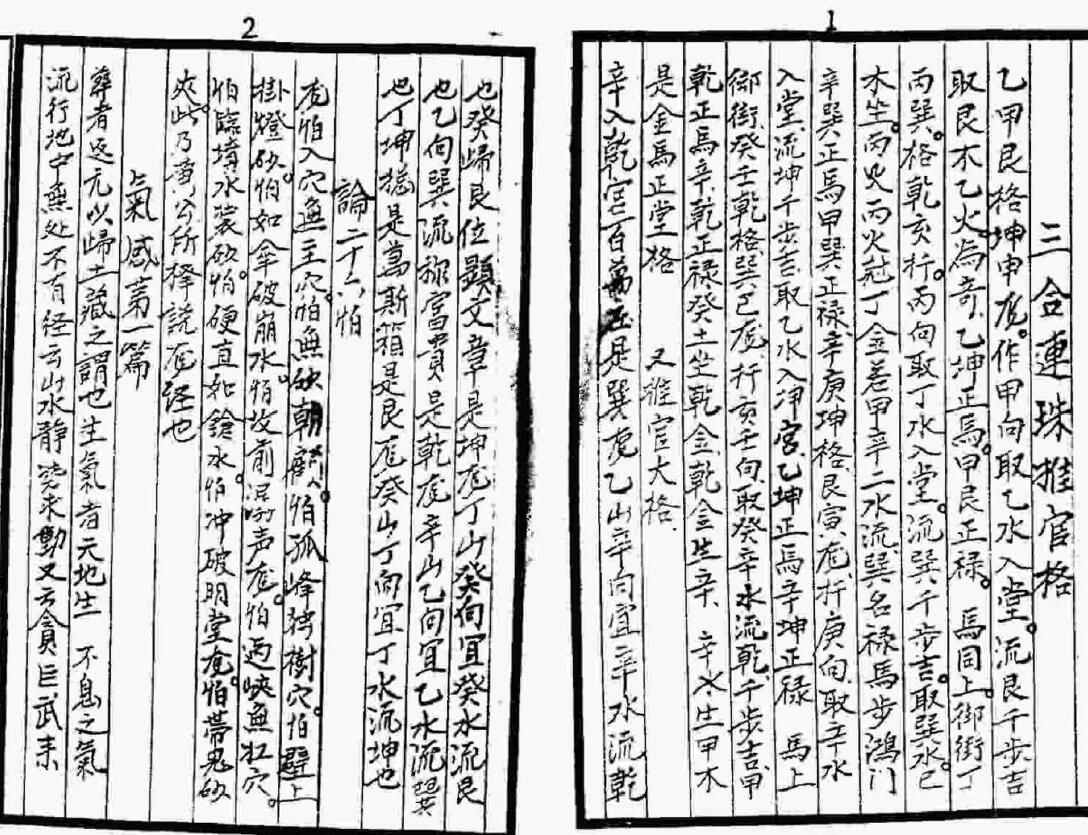 1
三合連珠推官格
乙甲艮格坤申龙。作甲向取乙水入堂。流艮千步吉
取艮木乙火為奇，乙坤正馬。甲艮正禄。馬同上。御街丁
丙巽。格乾亥行。丙向取丁水入堂。流巽千步吉。取巽水己
木生。丙火丙火赴丁金差甲辛二水流巽名禄馬步鴻门
辛巽正馬甲巽正禄辛庚坤格艮寅龙行庚向取辛水
入堂流坤千步吉取乙水入坤宮乙坤正馬辛坤正禄 馬上
御街癸壬乾格巽巳龙行亥壬向取癸辛水流乾千步吉甲
乾正馬辛乾正禄癸土坐乾金乾金生辛 辛水生甲木
是金馬正堂格 又雅官大格
辛入乾宮百萬庄是巽龙乙山辛向宜辛水流乾
2
也癸歸艮位顕文章是坤龙丁山癸向宜癸水流艮
也乙向巽流称富貴是乾龙辛山乙向宜乙水流巽
也丁坤抛是萬斯箱是艮龙癸山丁向宜丁水流坤也
論二十六怕
龙怕入穴無主穴。怕無砂朝顧。怕孤峰独樹穴。怕壁上
掛燈砂。怕如傘破崩水。怕坟前声龙。怕過峡無扛穴。
怕臨墳水裝砂。怕硬直如鎗水。怕冲破明堂龙。怕帶鬼砂
夾此乃曹公所择説龙经也
氣感第一篇
葬者返元以歸土藏之謂也生氣者元地生 不息之氣
流行地中無处不有经云山水静来動又云貪巨武来